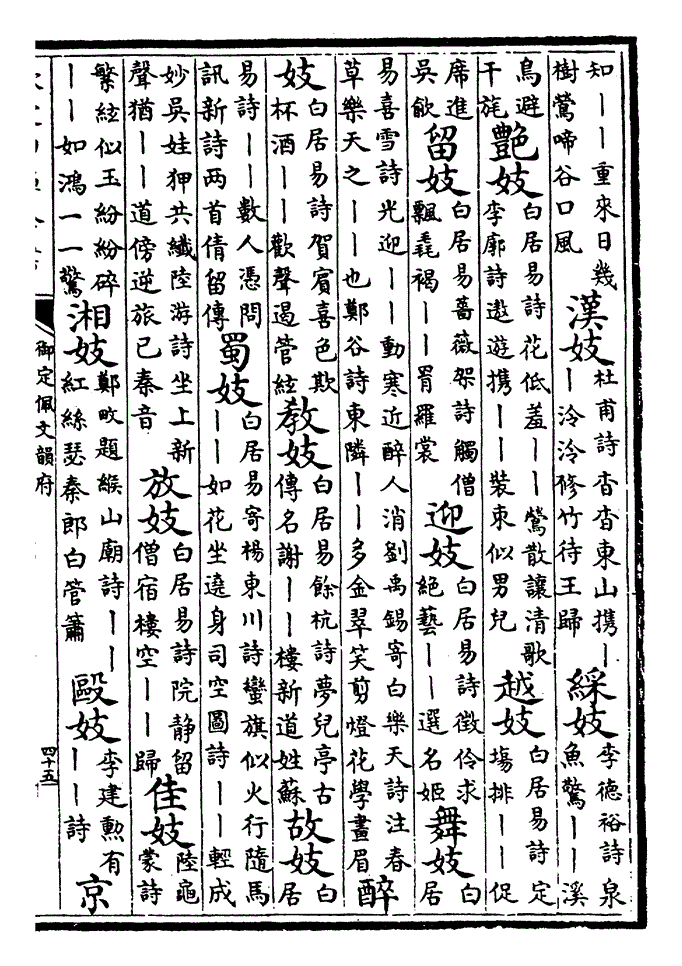 知——重來日幾樹鶯啼谷口風漢妓杜甫詩杳杳東山携——泠泠修竹待王歸綵妓李德裕詩泉魚驚——溪
鳥避干旄艷妓白居易詩花低羞——鶯散讓清歌李廓詩遨遊携——裝束似男兒越妓白居易詩定塲排——促
席進吳飲留妓白居易薔薇架詩觸僧飄毳褐——罥羅裳迎妓白居易詩徵伶求絕藝——選名姬舞妓白居
易喜雪詩光迎——動寒近醉人消劉禹錫寄白樂天詩注春草樂天之——也鄭谷詩東隣——多金翠笑剪燈花學畫眉醉
妓白居易詩賀賓喜色欺杯酒——歡聲遏管絃教妓白居易餘杭詩夢兒亭古傳名謝——樓新道姓蘇故妓白居
易詩——數人憑問訊新詩两首倩留傳蜀妓白居易寄楊東川詩蠻旗似火行隨馬——如花坐遶身司空圖詩——輕成
妙吳娃狎共纖陸游詩坐上新聲猶——道傍逆旅已秦音放妓白居易詩院静留僧宿樓空——歸佳妓陸龜蒙詩
繁絃似玉紛紛碎——如鴻一一驚湘妓鄭畋題緱山廟詩——紅絲瑟秦郎白管簫毆妓李建勳有——詩京
御定佩文韻府
四十五